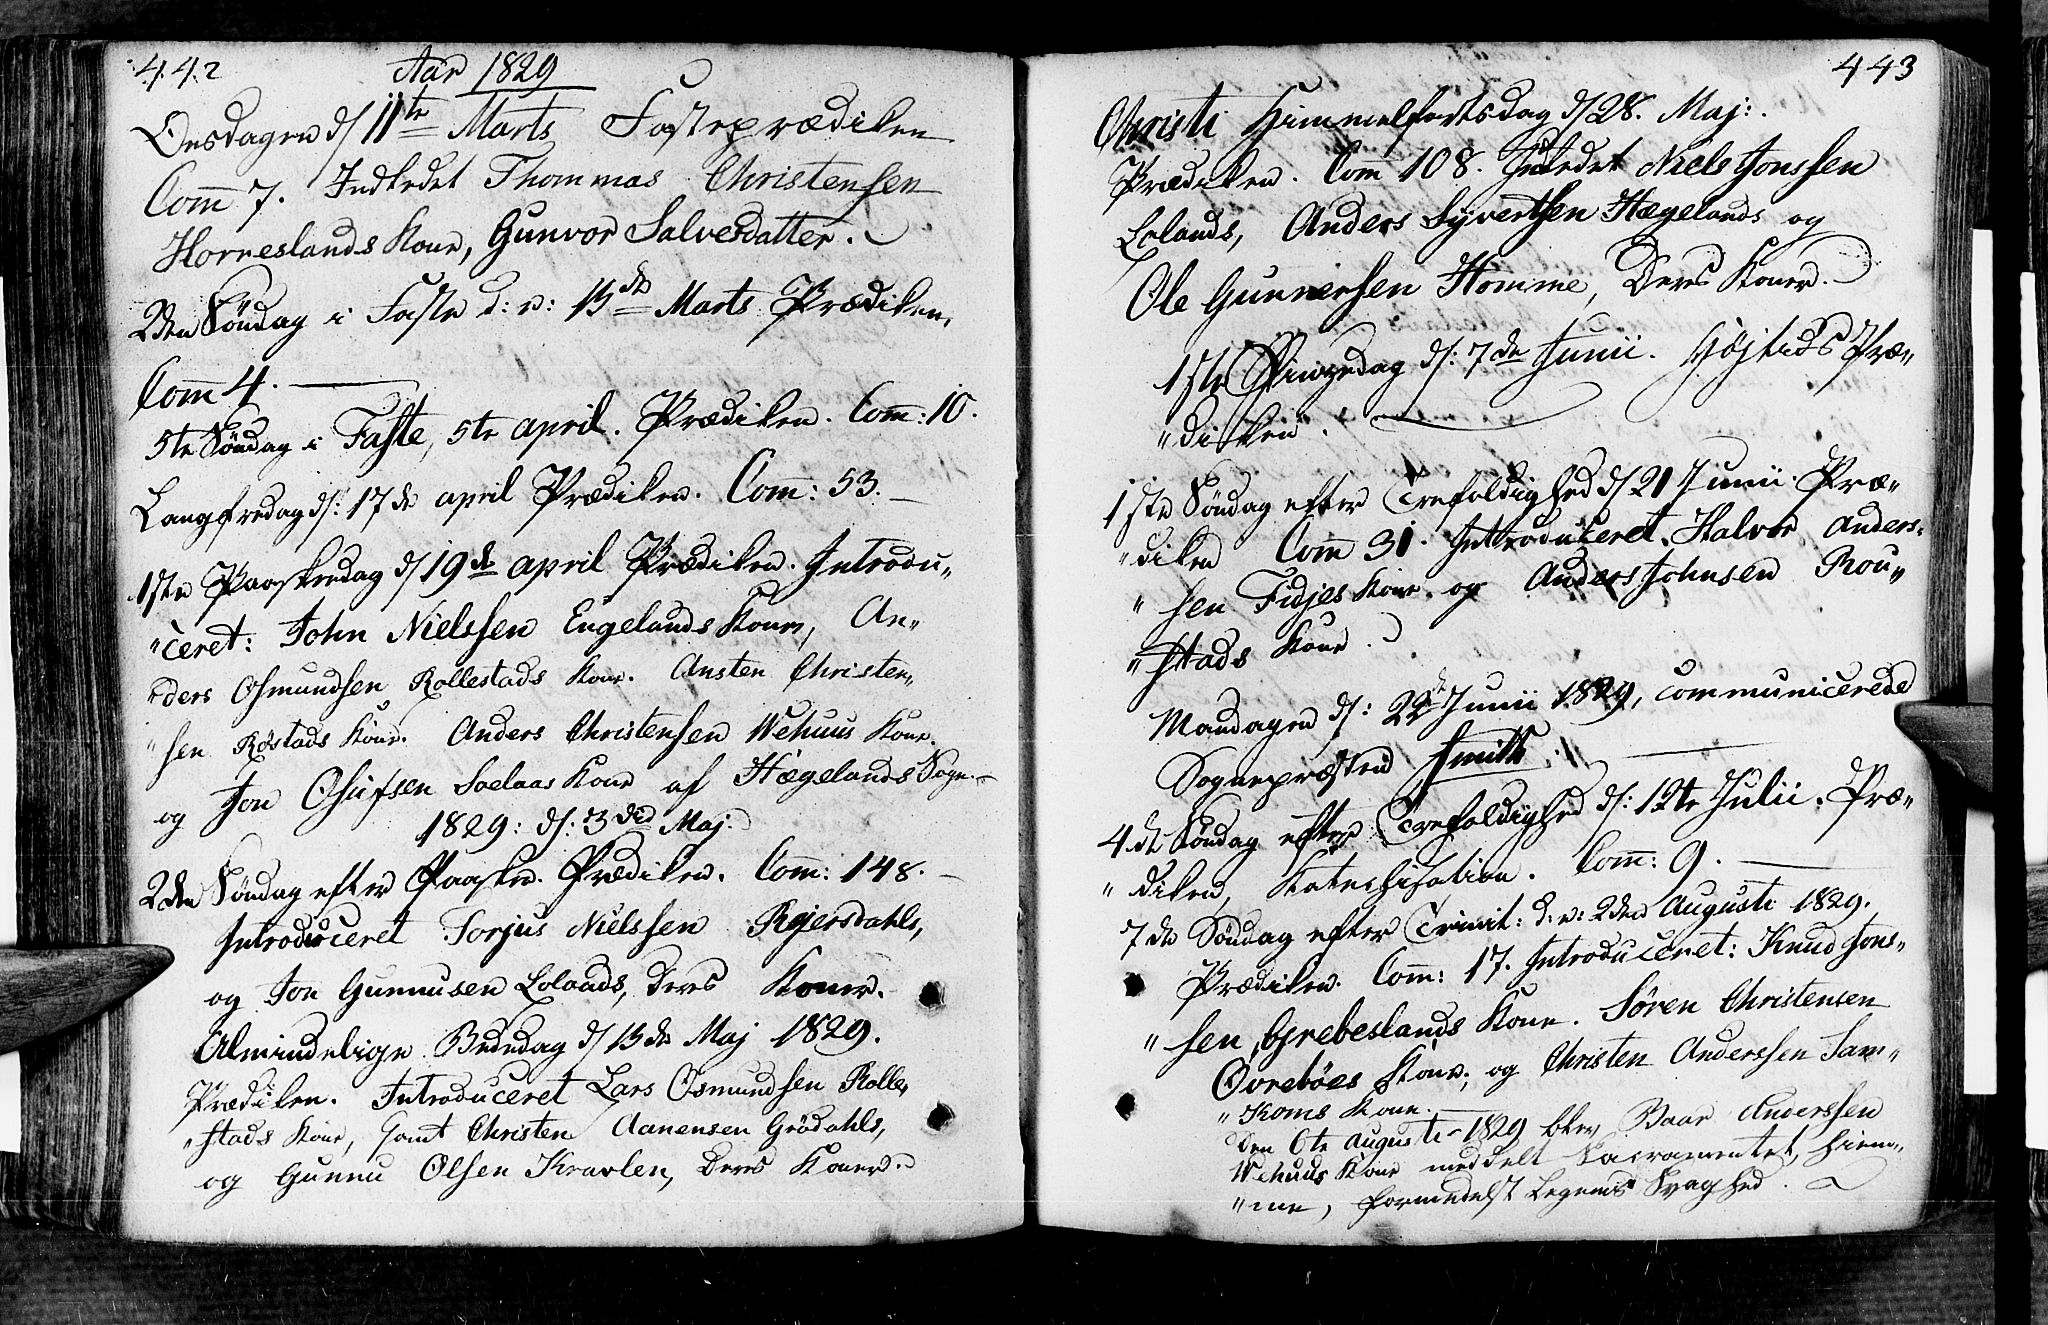 442
Aar 1829
Onsdagen d/ 11te Marts Fasteprædiken
Com̄ 7. Indledet Thommas Christensen
Horneslands Kone, Gunvor Salvesdatter.
2den Søndag i Faste d: v: 15de Marts Prædiken,
Com̄ 4.
5te Søndag i Faste, 5te april. Prædiken. Com̄: 10.
Langfredag d/: 17de april Prædiken. Com̄: 53.
1ste Paaskedag d/ 19de april Prædiken. Introdu„
„ceret: John Nielssen Engelands Kone, An„
„ders Osmundsen Rollestads Kone. Ansten Christen„
„sen Røstads Kone. Anders Christensen Wehuus Kone.
og Jon Osufsen Kone af Hægelands Sogn.
1829: d/: 3die Maj.
2den Søndag efter Paaske. Prædiken. Com̄: 148.
Introduceret Torjus Nielssen Rejersdahls,
og Jon Gunnusen Lolands, deres Koner.
Almindelige Bededag d/ 15de Maj 1829.
Prædiken. Introduceret Lars Osmundsen Rolle„
„stads Kone, samt Christen Aanensen Grødahls,
og Gunnu Olsen Kravlen, deres Koner.
443
Christi Himmelfartsdag d/ 28. Maj:.
Prædiken. Com̄ 108. Indledet Niels Jonssen
Lolands, Anders Syvertsen Hægelands og
Ole Gunnersen Homme, Deres Koner.
1ste Pintzedag d/: 7de Junii. Højtids Præ„
„diken.
1ste Søndag efter Trefoldighed d/ 21 Junii Præ„
„diken Com̄ 31. Introduceret Halvor Anders„
„sen Fidjes Kone og Anders Johnsen Rou„
„stads Kone.
Mandagen d/: 22de Junii 1829, communicerede
Sognepræsten Smith.
4de Søndag efter Trefoldighed d/: 12te Julii. Præ„
„diken, Katechisation. Com̄: 9.
7de Søndag efter Trinit: d: v: 2den Augusti 1829.
Prædiken. Com̄: 17. Introduceret: Knud Jons„
„sen Grebeslands Kone. Søren Christensen
Øvrebøes Kone, og Christen Anderssen Sam„
„Koms Kone.
Den 6te augusti 1829 blev Baar Anderssen
Wehuus Kone meddelt Sacramentet, hiem„
„me, formedelst Legems Svaghed.